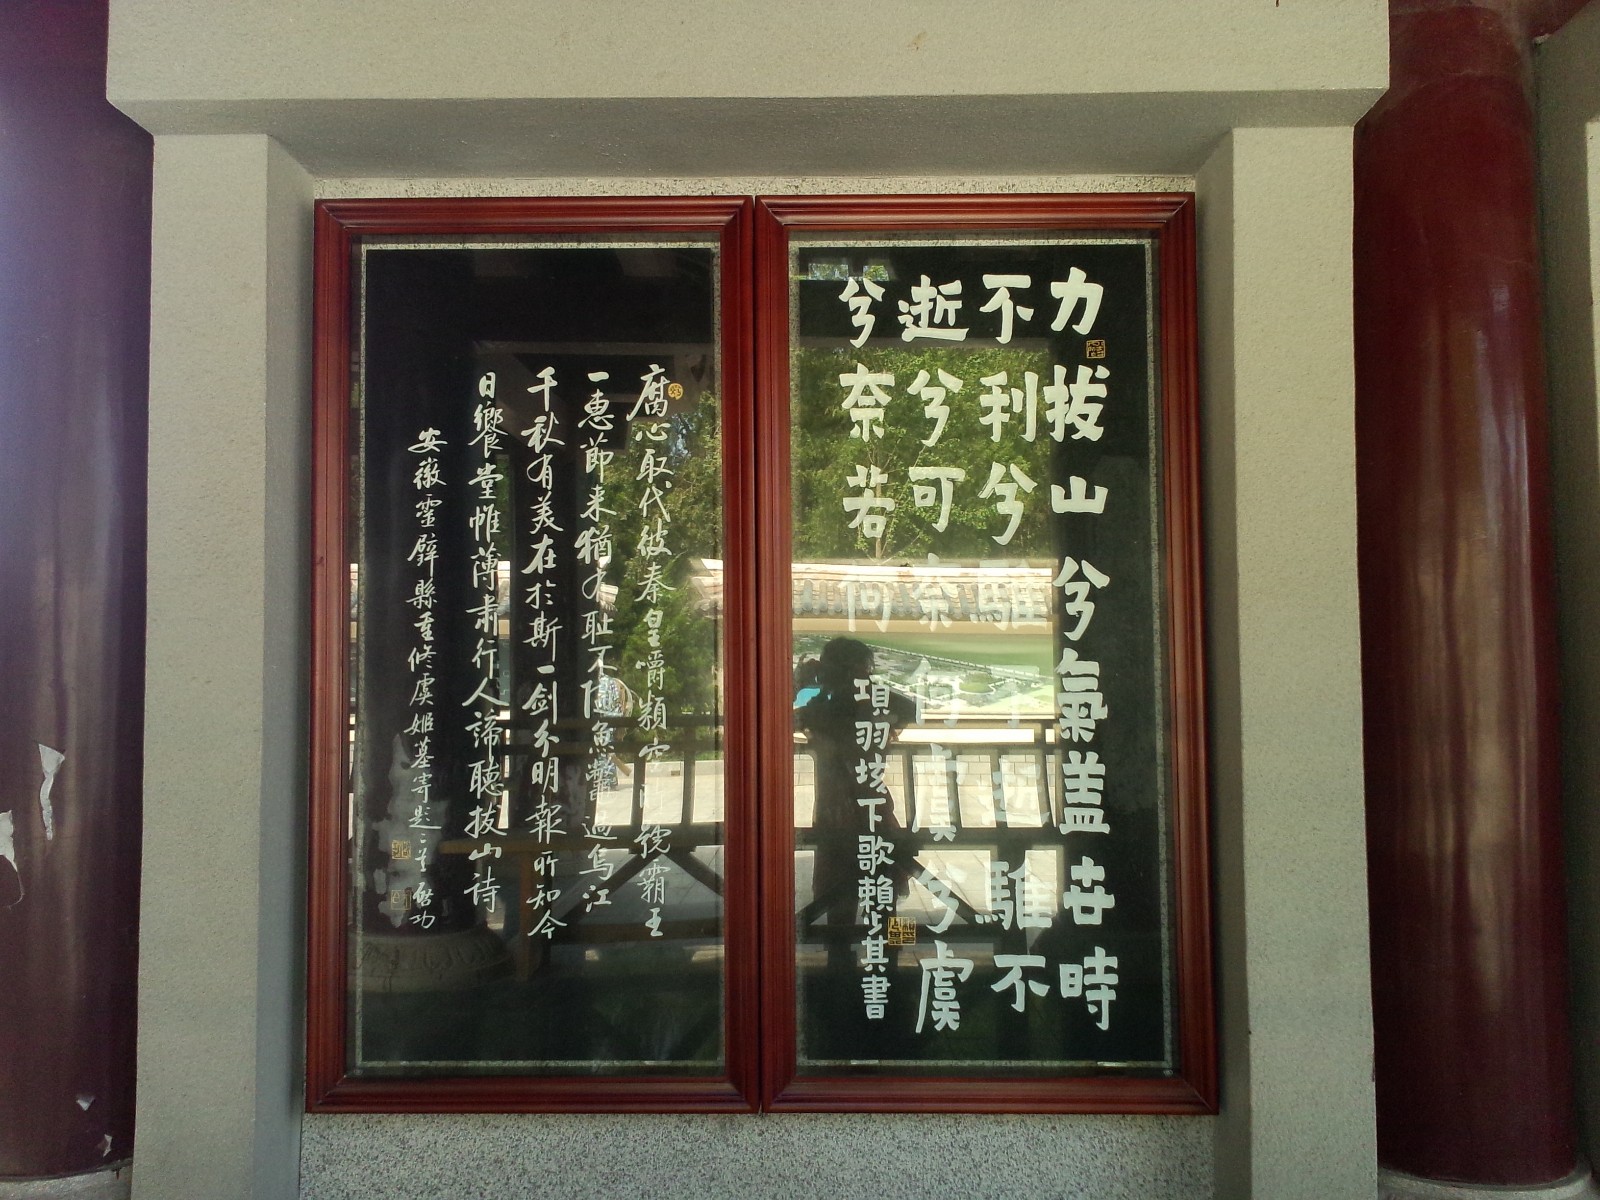 力拔山兮氣盖世時
不利兮騅不逝騅不
逝兮可奈何虞兮虞
兮奈若何
項羽垓下歌賴少其書
腐心取代彼秦皇嚼穎空號霸王
一惠節来猶有耻不隨魚鱉過烏江
千秋有美在於斯一剑分明報所知今
日饗堂帷薄肃行人諦聽拔山诗
安徽靈壁縣重修虞姬墓寄題二首 啓功